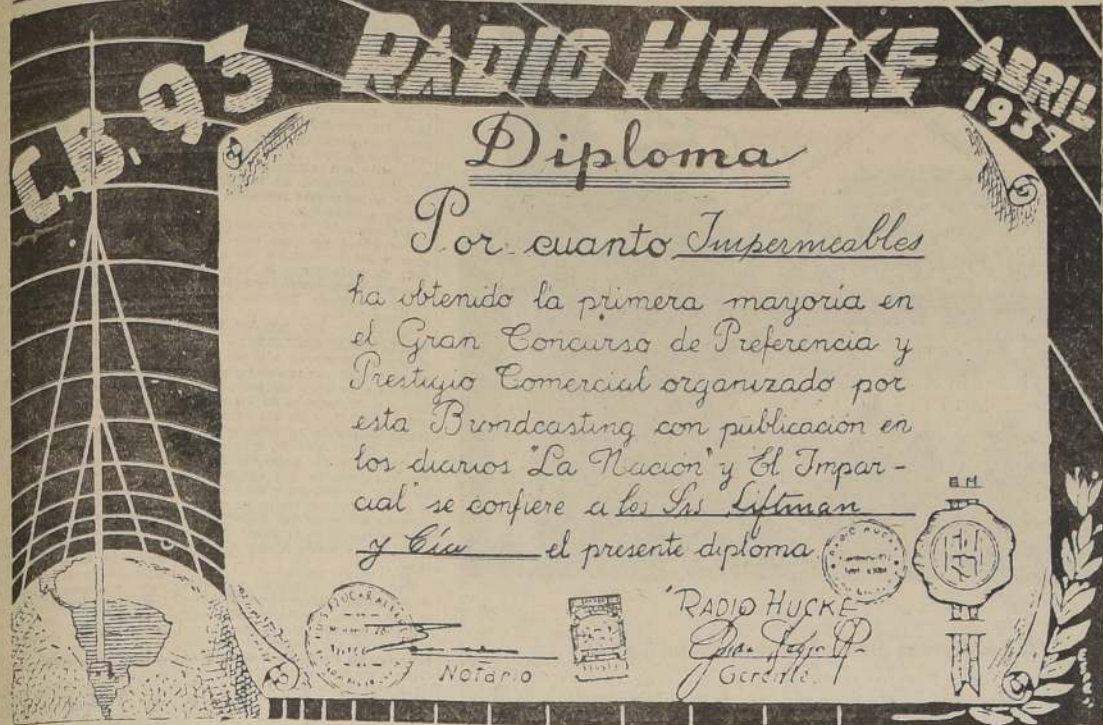 C.B. 93
RADIO HUCKE
ABRIL
1937
Diploma
Por cuanto Impermeables
ha obtenido la primera mayoría en
el Gran Concurso de Preferencia y
Prestigio Comercial organizado por
esta Brondcasting con publicación en
los diarios "La Nación" y El Impar-
cial" se confiere a los Srs Liftman
y Cía el presente diploma
RADIO HUCKE
"RADIO HUCKE
Notario
Gerente.